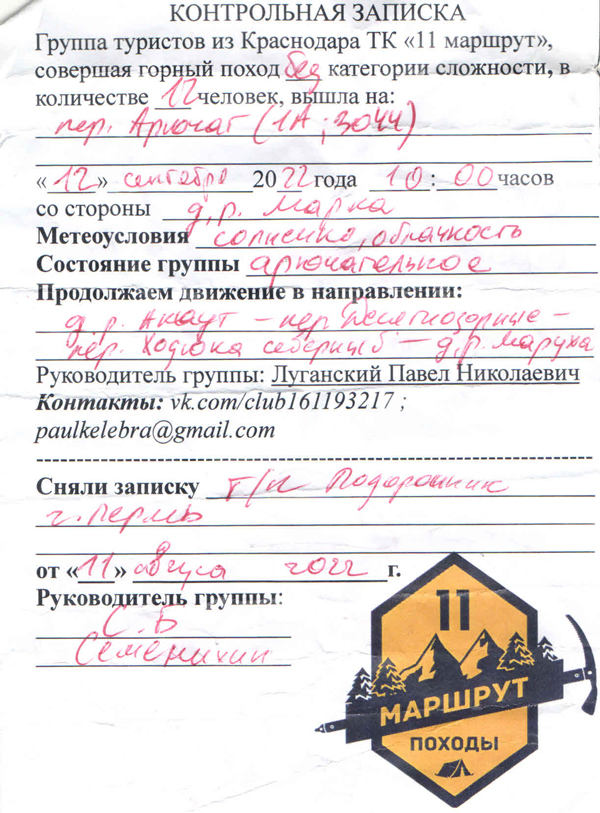 КОНТРОЛЬНАЯ ЗАПИСКА
Группа туристов из Краснодара ТК «11 маршрут»,
совершая горный поход без категории сложности, в
количестве 12 человек, вышла на:
пер. Арючат (1А; 3044)
«12» сентября 2022 года 10:00 часов
со стороны д.р. Марка
Метеоусловия солнечно, облачность
Состояние группы арючательное
Продолжаем движение в направлении:
д.р. Аксаут – пер.
пер. Ходюка северный – д.р. Маруха
Руководитель группы: Луганский Павел Николаевич
Контакты: vk.com/club161193217 ;
paulkelebra@gmail.com
Сняли записку т/к Подорожник
г. Пермь
от «11» августа 2022 г.
Руководитель группы:
С.Б
Семенихин
11
МАРШРУТ
ПОХОДЫ